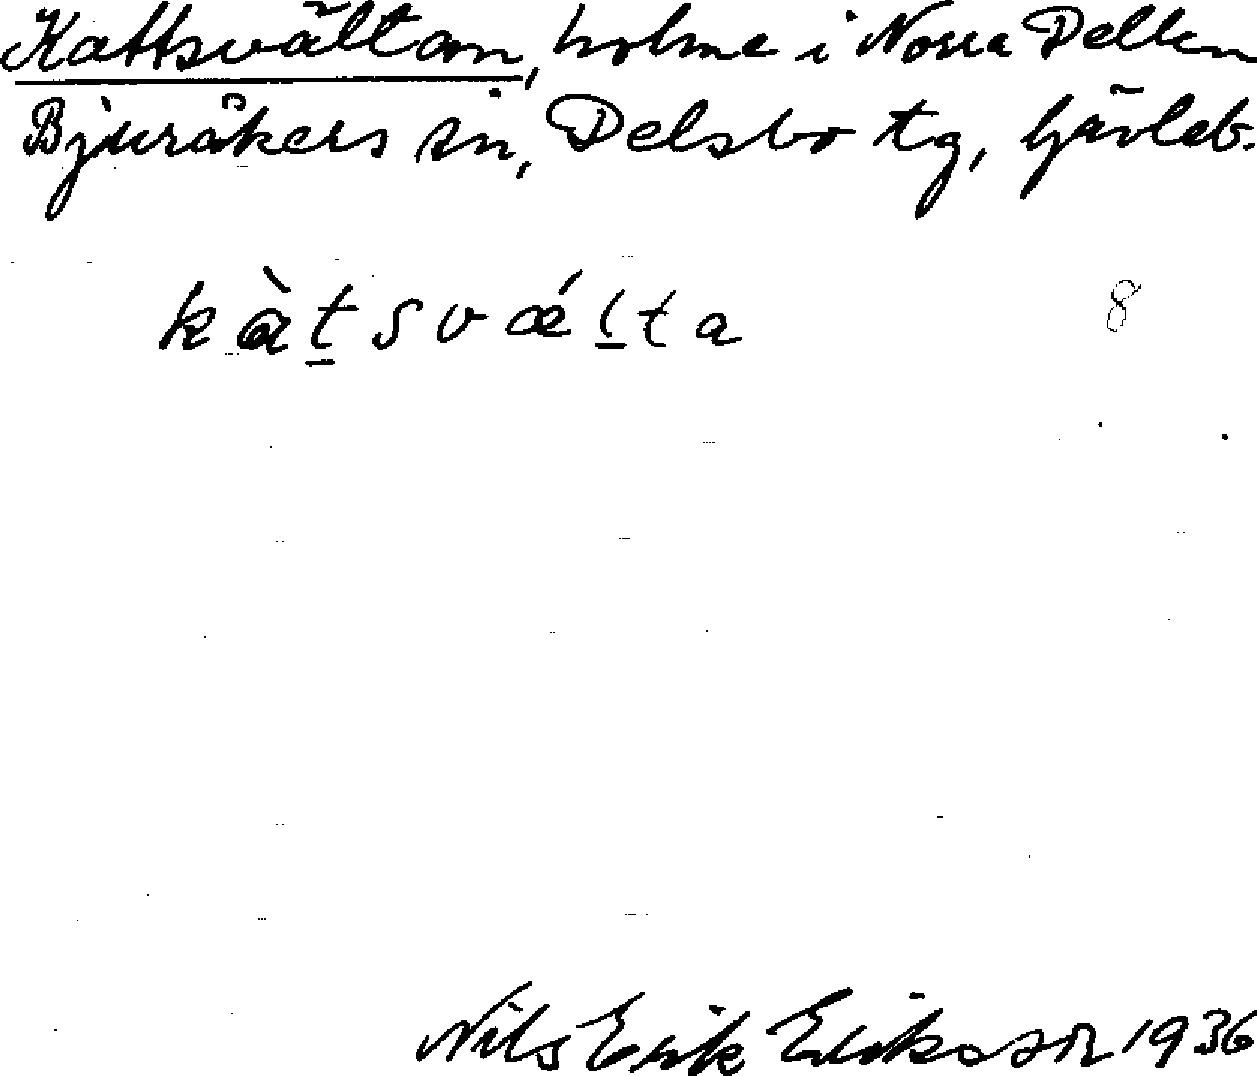 Kattsvältan, holme i Norra Dellen
Bjuråkers sn, Delsbo tg, Gävleb.
kàt̲svǽl̲ta 8
Nils Erik Eriksson 1936